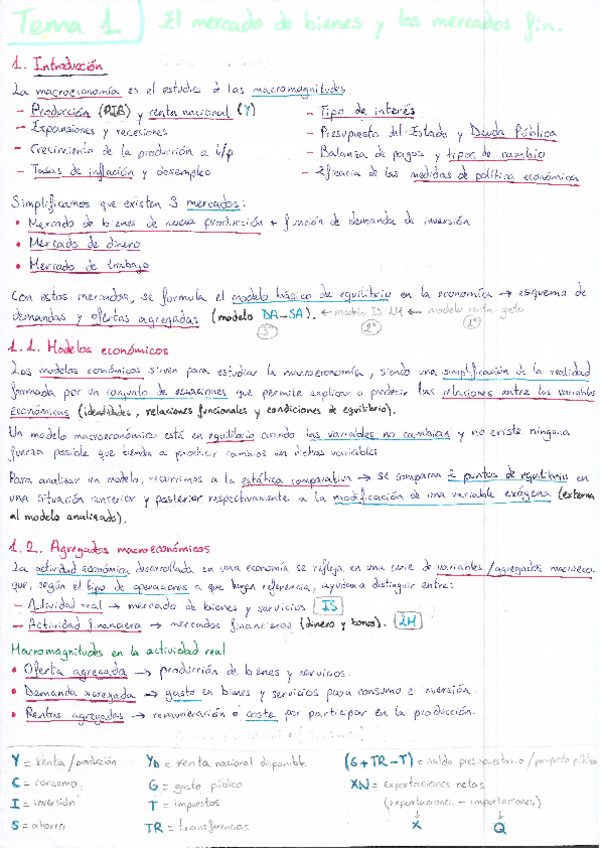 Tema 1 El mercado de bienes y los mercados fin.
1. Introducción
La macroeconomía es el estudio de las macromagnitudes:
- Producción (PIB) y renta nacional (Y)
- Expansiones y recesiones
- Crecimiento de la producción a l/p
- Tasas de inflación y desempleo
- Tipo de interés
- Presupuesto del Estado y Deuda Pública
- Balanza de pagos y tipos de cambio
- Eficacia de las medidas de política económica
Simplificamos que existen 3 mercados:
• Mercado de bienes de nueva producción + función de demanda de inversión
• Mercado de dinero
• Mercado de trabajo
Con estos mercados, se formula el modelo básico de equilibrio en la economía → esquema de
demandas y ofertas agregadas (modelo DA-SA). ← modelo IS-LM ← modelo renta-gasto
3º 2º 1º
1.1. Modelos económicos
Los modelos económicos sirven para estudiar la macroeconomía, siendo una simplificación de la realidad
formada por un conjunto de ecuaciones que permite explicar o predecir las relaciones entre las variables
económicas (identidades, relaciones funcionales y condiciones de equilibrio).
Un modelo macroeconómico está en equilibrio cuando las variables no cambian y no existe ninguna
fuerza posible que tienda a producir cambios en dichas variables
Para analizar un modelo, recurrimos a la estática comparativa → se comparan 2 puntos de equilibrio en
una situación anterior y posterior respectivamente a la modificación de una variable exógena (externa
al modelo analizado).
1.2. Agregados macroeconómicos
La actividad económica desarrollada en una economía se refleja en una serie de variables/agregados macroeco.
que, según el tipo de operaciones a que hagan referencia, ayudan a distinguir entre:
- Actividad real → mercado de bienes y servicios IS
- Actividad financiera → mercados financieros (dinero y bonos). LM
Macromagnitudes en la actividad real
• Oferta agregada → producción de bienes y servicios.
• Demanda agregada → gasto en bienes y servicios para consumo e inversión.
• Rentas agregadas → remuneración o coste por participar en la producción.
Y = Renta/producción
C = consumo
I = inversión
S = ahorro
YD = renta nacional disponible
G = gasto público
T = impuestos
TR = transferencias
(G+TR-T) = saldo presupuestario / público
XN = exportaciones netas
(exportaciones - importaciones)
↓ ↓
X Q